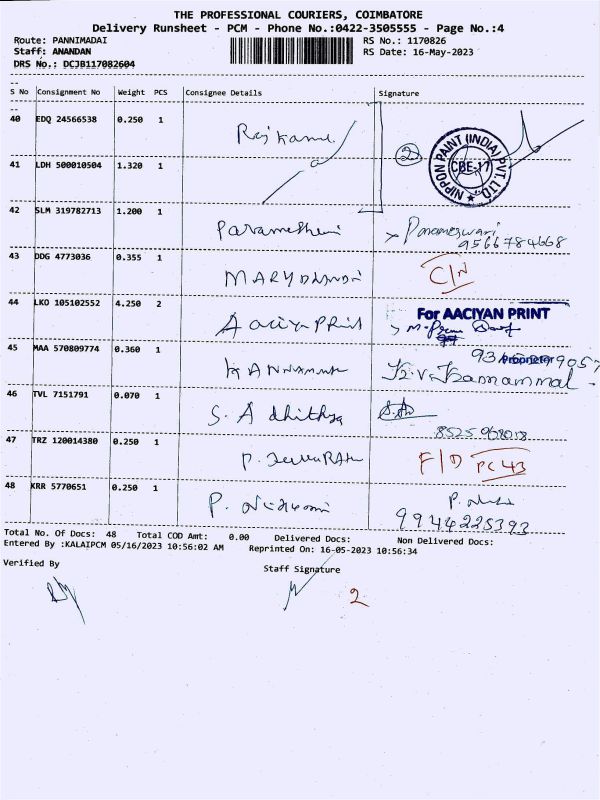 THE PROFESSIONAL COURIERS, COIMBATORE
Delivery Runsheet - PCM - Phone No.:0422-3505555 - Page No.:4
Route: PANNIMADAI RS No.: 1170826
Staff: ANANDAN RS Date: 16-May-2023
DRS No.: DCJB117082604
S No Consignment No Weight PCS Consignee Details Signature
40 EDQ 24566538 0.250 1
NIPPON PAINT (INDIA) PVT. LTD. CBE-17
2
41 LDH 500010504 1.320 1
42 SLM 319782713 1.200 1 Parameshwari Parameswari
9566784668
43 DDG 4773036 0.355 1 C/N
44 LKO 105102552 4.250 2 Aaciya PRint For AACIYAN PRINT
Proprietor
45 MAA 570809774 0.360 1 KANNAMMA K.V. Kannammal
46 TVL 7151791 0.070 1 S. Adhithya
8525968018
47 TRZ 120014380 0.250 1 F/D PC43
48 KRR 5770651 0.250 1
9944225393
Total No. Of Docs: 48 Total COD Amt: 0.00 Delivered Docs: Non Delivered Docs:
Entered By :KALAIPCM 05/16/2023 10:56:02 AM Reprinted On: 16-05-2023 10:56:34
Verified By Staff Signature
2